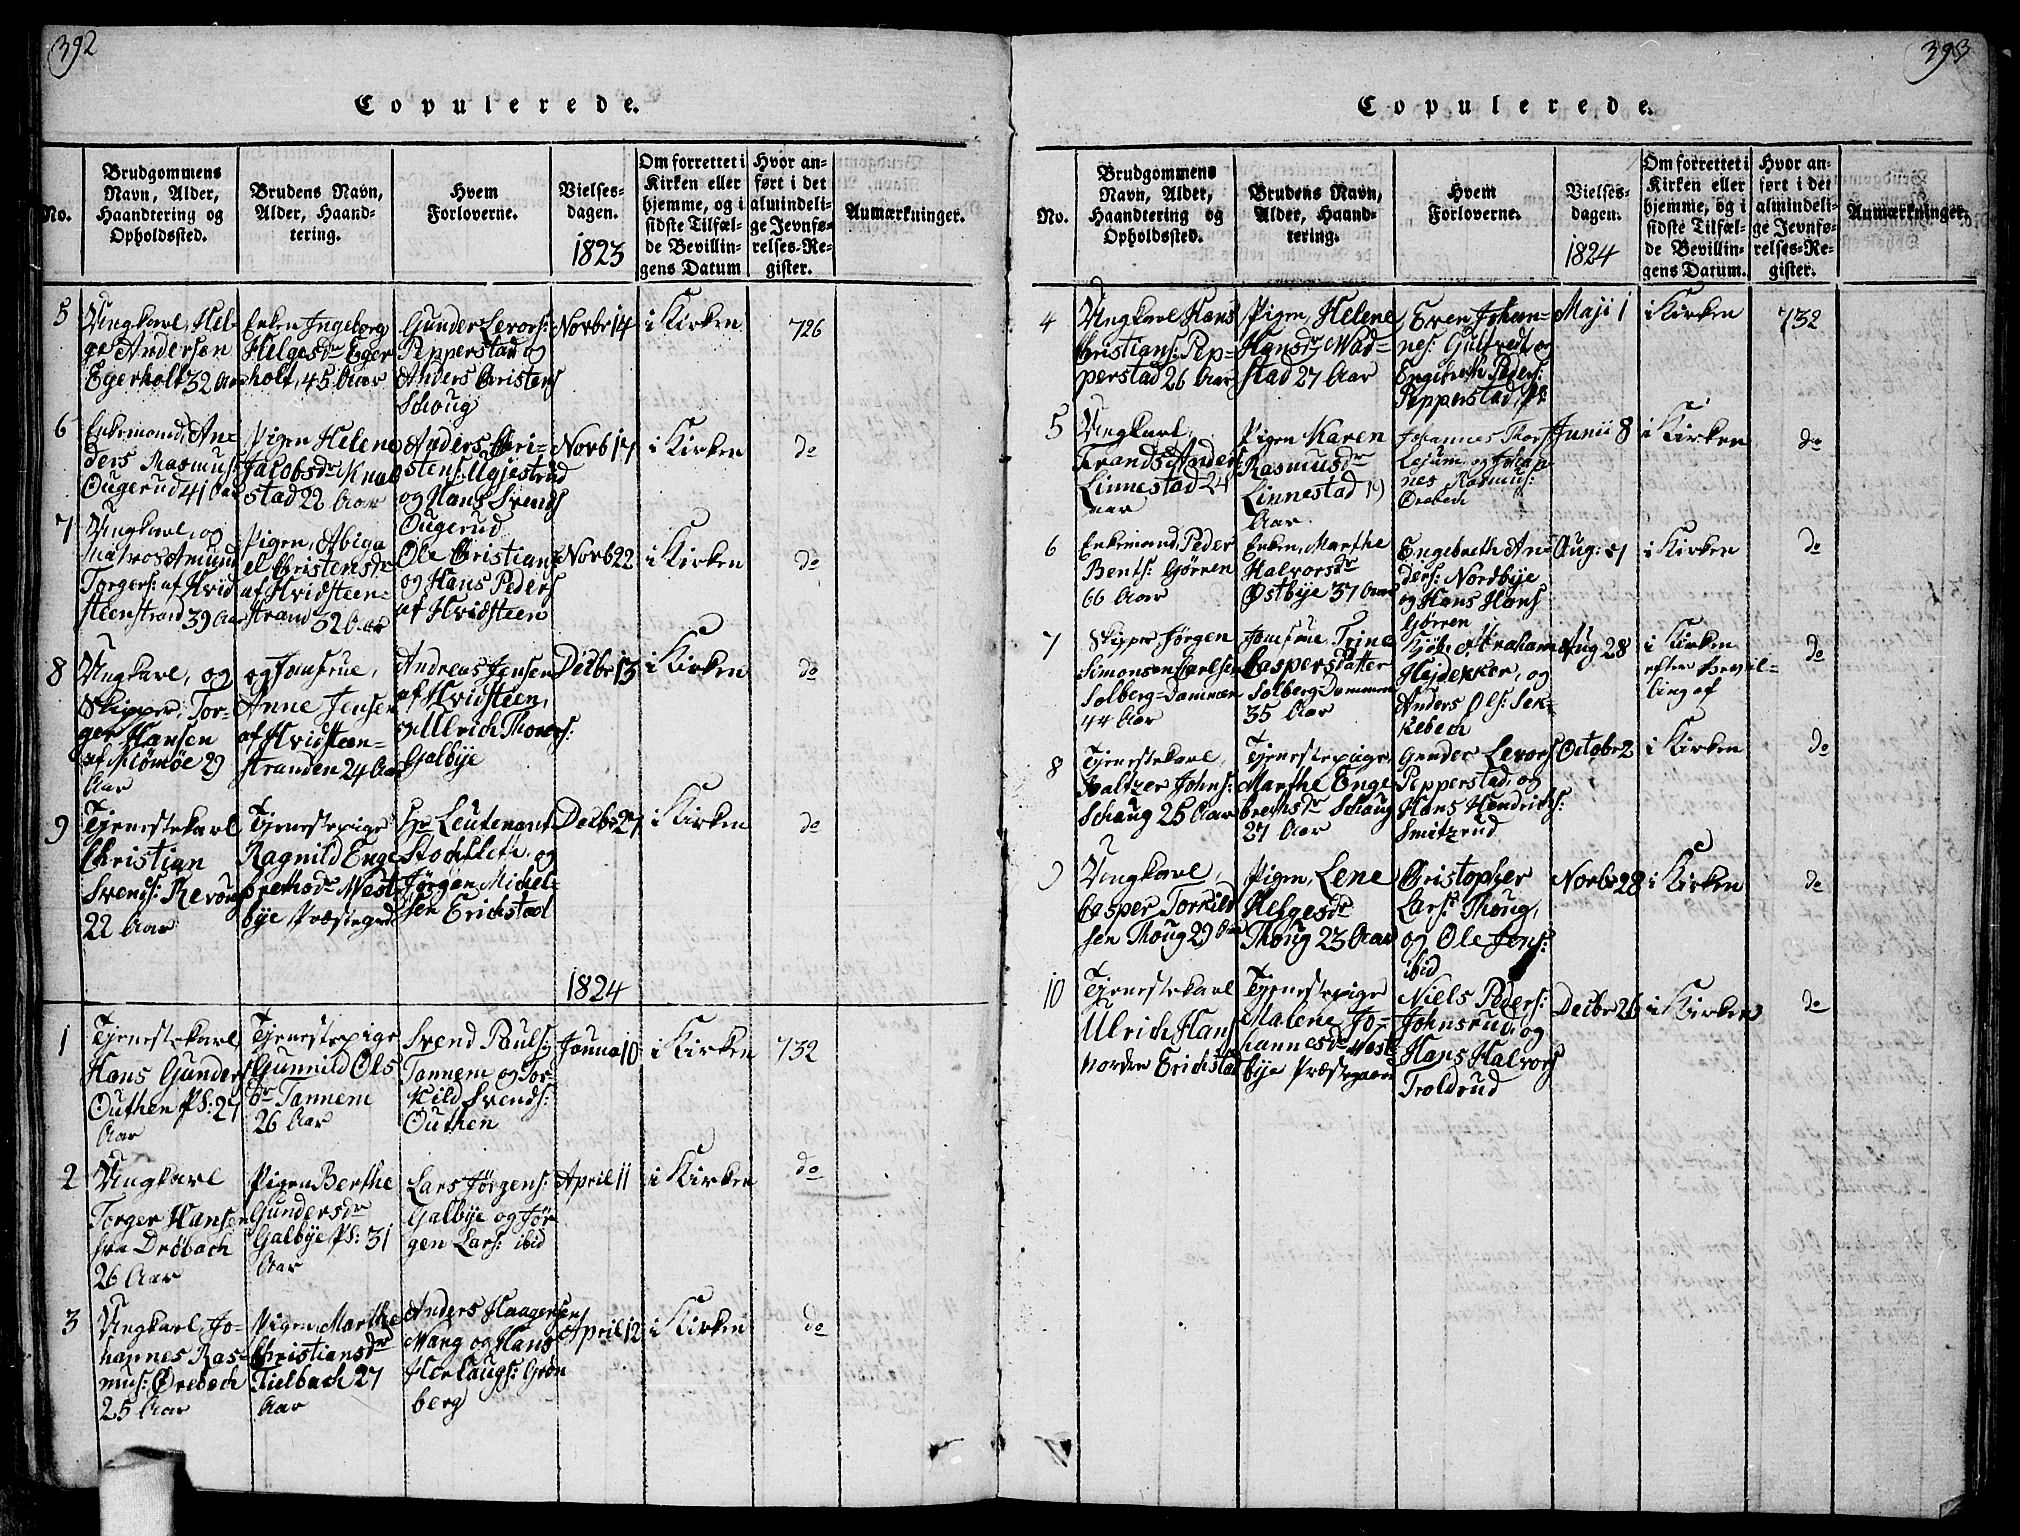 392
Copulerede.
No.
Brudgommens
Navn, Alder,
Haandtering og
Opholdssted.
Brudens Navn,
Alder, Haand-
tering.
Hvem
Forloverne.
Vielses-
dagen.
1823
Om forrettet i
Kirken eller
hjemme, og i
sidste Tilfæl-
de Bevillin-
gens Datum
Hvor an-
ført i det
almindeli-
ge Jevnfø-
relses-Re-
gister.
Anmærkninger.
5
Ungkarl, Hel-
ge Andersen
Egerholt 32 Aar
Enken Ingeborg
Helgesdr Eger
holt, 45 Aar
Gunder Levors:
Pepperstad og
Anders Christens
Schoug
Novbr 14
i Kirken
726
6
Enkemand, An-
ders Rasmus:
Ougerud 41 Aar
Pigen Helene
Jacobsdr Knap
stad 22 Aar
Anders Chri-
stens: Mgjestrud
og Hans Svends
Ougerud
Novb 17
i Kirken
do
7
Ungkarl, og
Matros Amund
Torgers: af Hvid
steenstrand 39 Aar
Pigen, Abiga
el Christensdr
af Hvidsteen-
strand 32 Aar
Ole Christian
og Hans Peders
af Hvidsteen
Novb 22
i Kirken
do
8
Ungkarl, og
Skipper, Tor-
ger Hansen
af 29
Aar
og Jomfrue,
Anne Jensen
af Hvidsteen-
stranden 24 Aar
Andreas Jensen
af Hvidsteen,
og Ulrich Thores:
Galbye
Decbr 13
i Kirken
do
9
Tjenestekarl
Christian
Svends: Revoug
22 Aar
Tjenestepige
Ragnild Enge
brethsdr West
bye Præstegrd
Hr Leutenant
Stockfleth og
Jørgen Michel-
sen Erichstad
Decbr 27
i Kirken
do
1824
1
Tjenestekarl
Hans Gunders
Outhen Ps: 27
Aar
Tjenestepige
Gunnild Ols
dr Tannem
26 Aar
Svend Pauls:
Tannem og Tor
kild Svends:
Outhen
Janua 10
i Kirken
732
2
Ungkarl
Torger Hansen
fra Drøbach
26 Aar
Pigen Berthe
Gundersdr
Galbye Ps: 31
Aar
Lars Jørgens:
Galbye og Jør
gen Lars: ibid
April 11
i Kirken
do
3
Ungkarl, Jo-
hannes Ras-
mus: Ørebech
25 Aar
Pigen Marthe
Christiansdr
Tielbach 27
Aar
Anders Haagensen
Wang og Hans
Herlaugs: Grøn
berg
April 12
i Kirken
do
393
Copulerede.
No.
Brudgommens
Navn, Alder,
Haandtering og
Opholdssted.
Brudens Navn,
Alder, Haand-
tering.
Hvem
Forloverne.
Vielses-
dagen.
1824
Om forrettet i
Kirken eller
hjemme, og i
sidste Tilfæl-
de Bevillin-
gens Datum.
Hvor an-
ført i det
almindeli-
ge Jevnfø-
relses-Re-
gister.
Anmærkninger.
4
Ungkarl Hans
Christians: Pep-
perstad 26 Aar
Pigen, Helene
Hansdr Wad-
stad 27 Aar
Even Johan-
nes: og
Engebreth Peders:
Pepperstad,
Maji 1
i Kirken
732
5
Ungkarl,
Frands Anders
Linnestad 24
aar
Pigen Karen
Rasmusdr
Linnestad 19
Aar
Johannes Thors
og Johan
nes Rasmus:
Ørebech
Junii 8
i Kirken
do
6
Enkemand, Peder
Bents: Gjørren
66 Aar
Enken, Marthe
Halvorsdr
Østbye 37 Aar
Engebreth An
ders: Nordbye
og Hans Hans
Gjørren
Aug:
i Kirken
do
7
Skipper Jørgen
Simonsen Carlsen
Solberg-Dammen
44 Aar
Jomfrue Trine
Caspersdatter
Solberg-Dammen
35 Aar
Kjøb: Abraham
Hejdekker, og
Anders Ols: Sek-
kebech
Aug 28
i Kirken
efter Bevil-
ling af
do
8
Tjenestekarl,
Baltzer Johns:
Schaug 25 Aar
Tjenestepige,
Marthe Enge
brethsdr Schaug
27 Aar
Gunder Levors
Pepperstad, og
Hans Hendrichs:
Smitzrud
Octobr 2
i Kirken
do
9
Ungkarl,
Casper Torkild
sen Thoug 29 Aar
Pigen, Lene
Helgesdr
Thoug 23 Aar
Christopher
Lars: Thoug,
og Ole Jens:
ibid
Novbr 28
i Kirken
do
10
Tjenestekarl
Ulrich Hans
nordre Erichstad
Tjenestepige
Malene Jo-
hannesdr West
bye Præstegaard
Niels Peders:
Johnsrud, og
Hans Halvors
Troldrud
Decbr 26
i Kirken
do